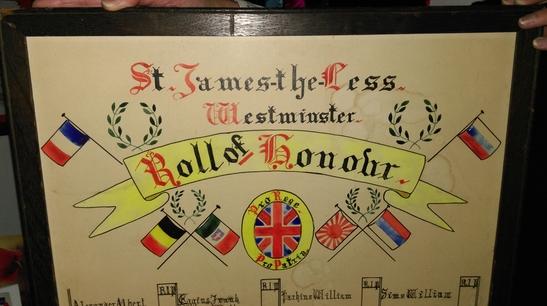 St. James-the-Less.
Westminster.
Roll of Honour.
Pro Rege.
Pro Patria
R.I.P. R.I.P. R.I.P. R.I.P.
Alexander Albert Eggins Frank Parkins William Sims William